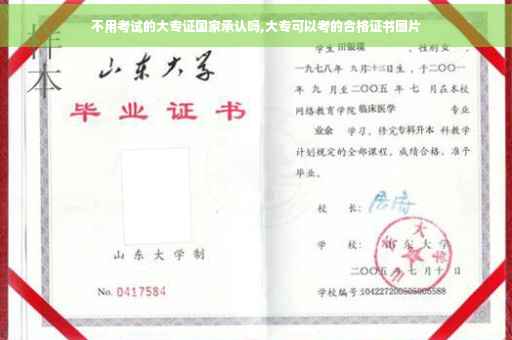 不用考试的大专证国家承认吗,大专可以考的合格证书图片
样
本
山东大学
毕业证书
山东大学制
No. 0417584
学生 田银瑞 ,性别女,
一九七八年 九月十三日生,于二〇〇一
年 九 月至二〇〇五 年 七 月在本校
网络教育学院 临床医学 专业
业余 学习,修完 专科升本 科教学
计划规定的全部课程,成绩合格,准予
毕业。
校 长:
学 校: 山东大学
二〇〇五 年 七 月 十 日
学校编号:104227200505005588